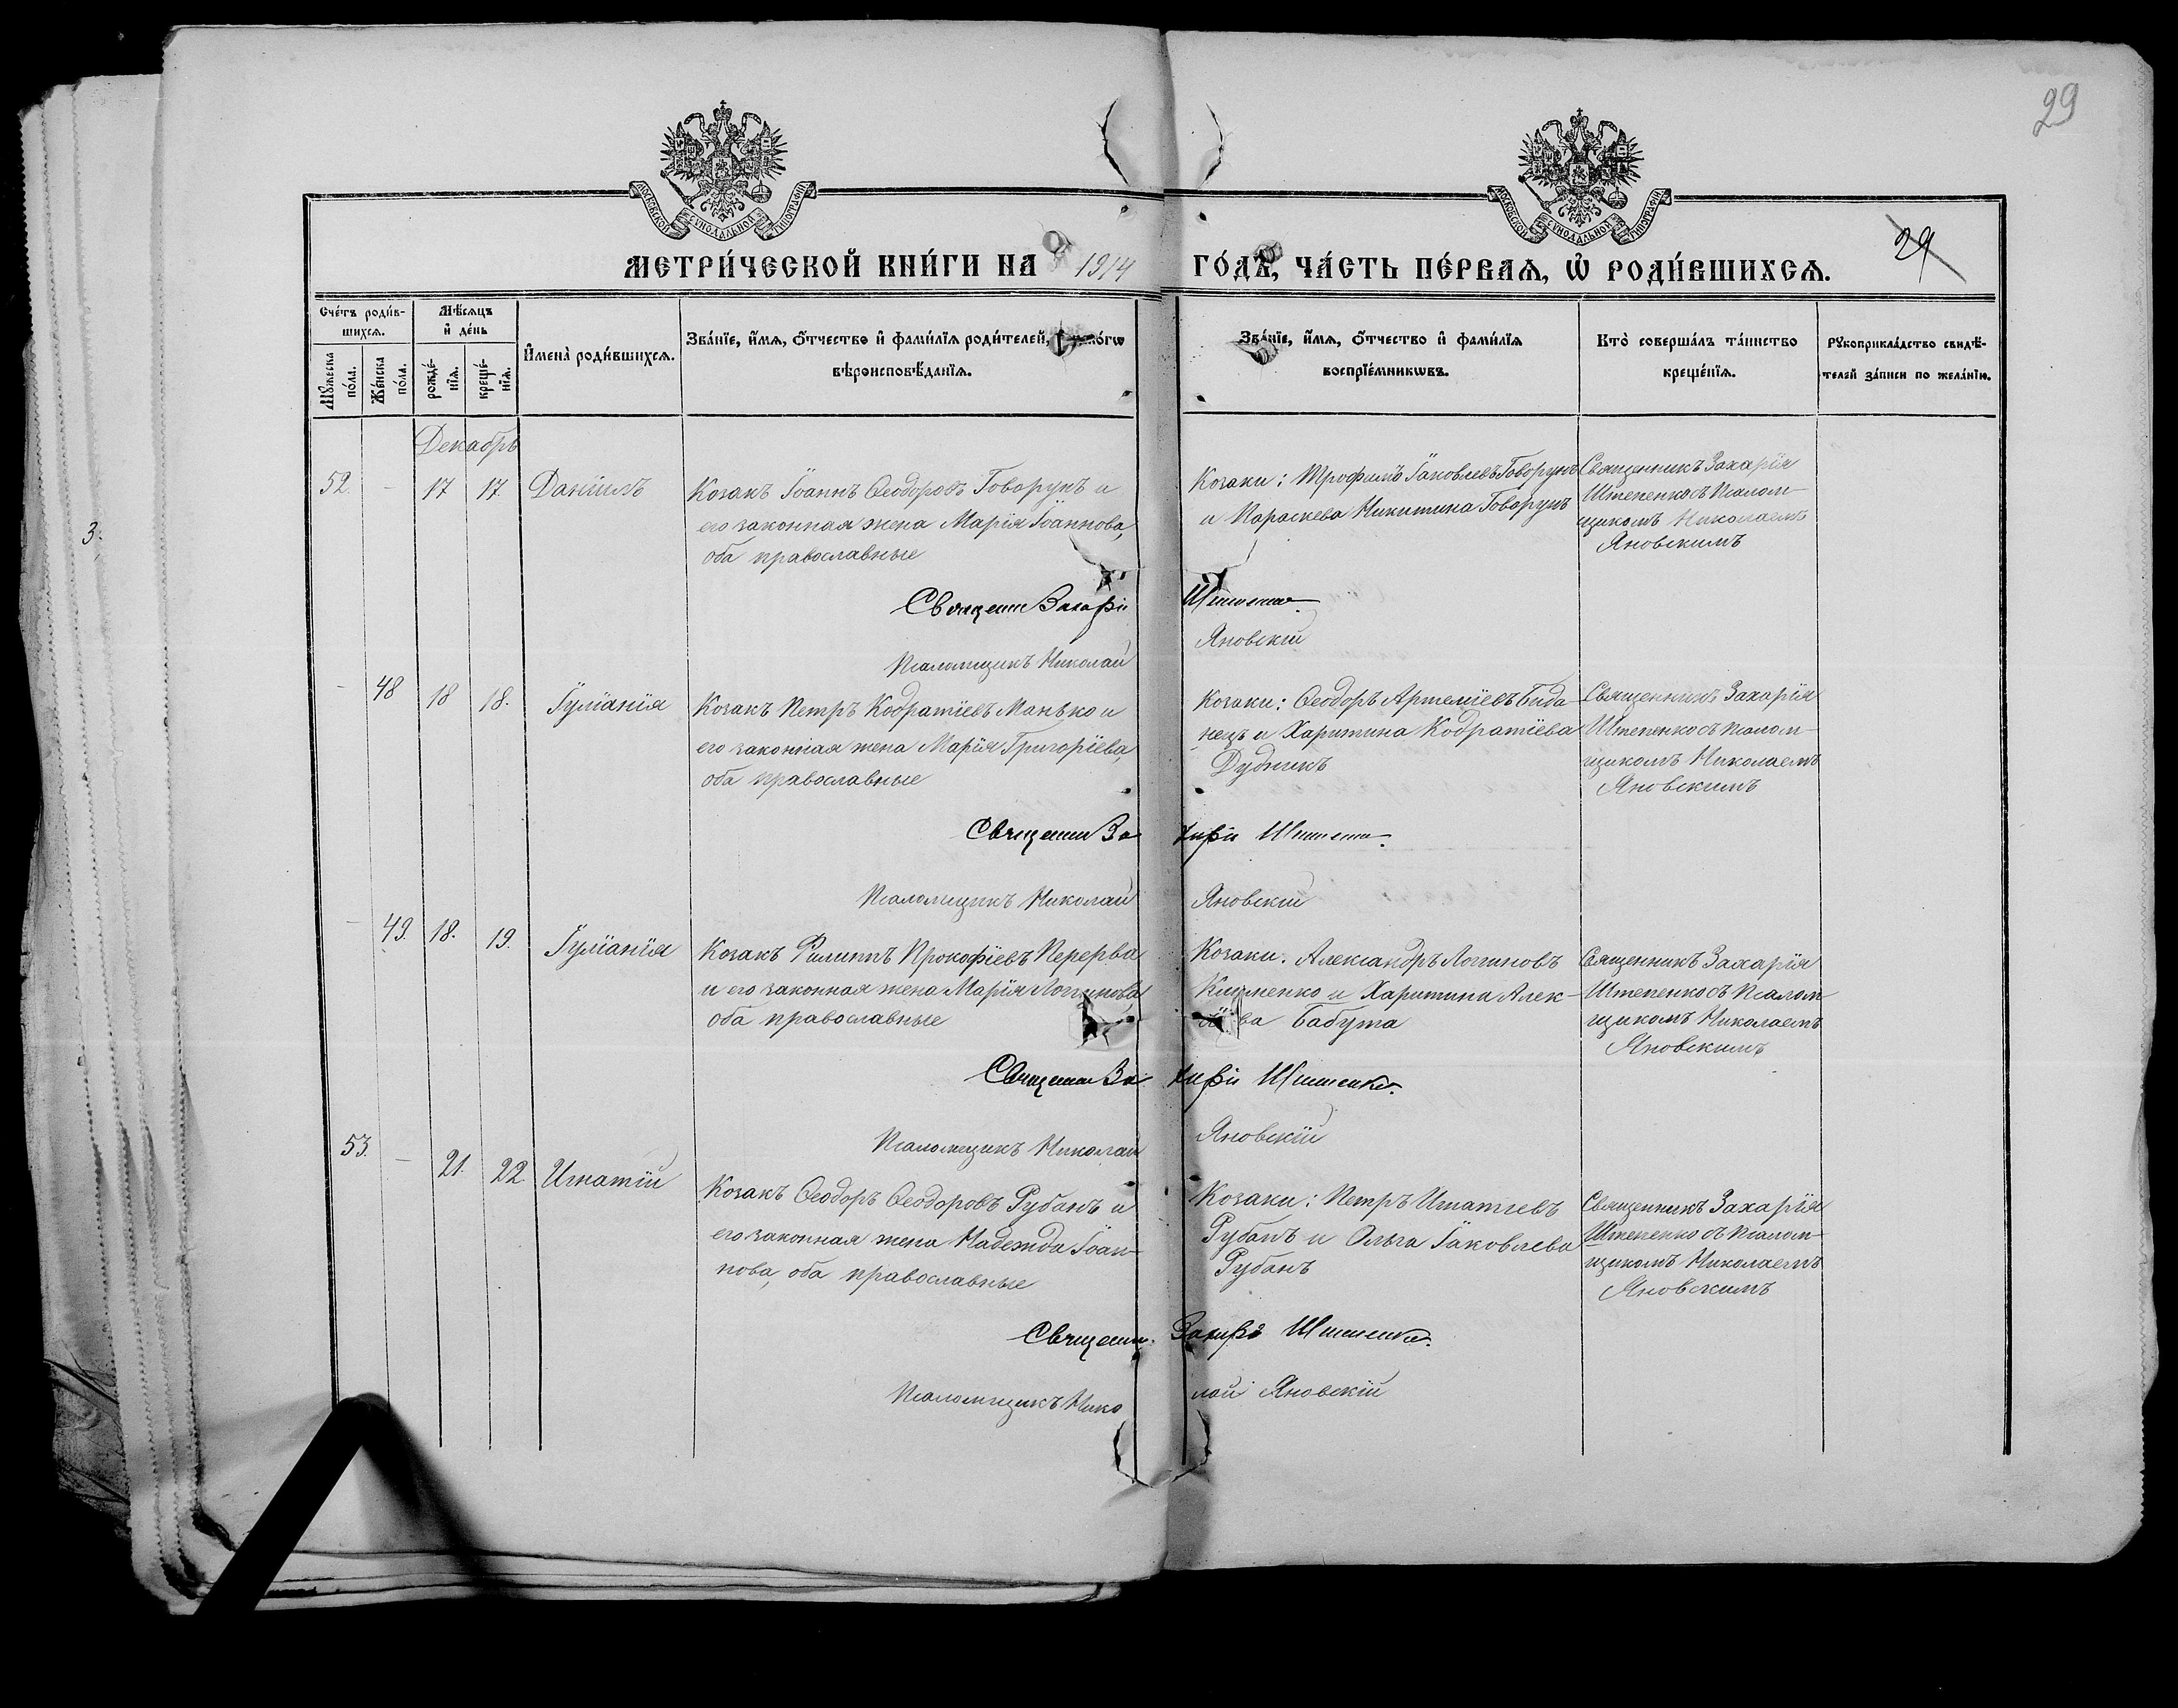 29
МОСКОВСКОЙ СУНОДАЛЬНОЙ ТИПОГРАФІИ
МОСКОВСКОЙ СУНОДАЛЬНОЙ ТИПОГРАФІИ
МЕТРИ́ЧЕСКОЙ КНИ́ГИ НА 1914 ГО́ДЪ, ЧА́СТЬ ПЕ́РВАѦ, Ѡ҆ РОДИ́ВШИХСѦ.
29
Сче́тъ роди́в-
шихсѧ.
Мѣ́сѧцъ
и҆ де́нь
Мꙋ́жеска по́ла.
Же́нска по́ла.
рожде́-
нїѧ.
креще́-
нїѧ.
И҆мена̀ роди́вшихсѧ.
Зва́нїе, и҆́мѧ, ѻ҆́тчество и҆ фами́лїѧ роди́телей,
вѣроисповѣ́данїѧ.
Зва́нїе, и҆́мѧ, ѻ҆́тчество и҆ фами́лїѧ
воспрїе́мникѡвъ.
Кто̀ соверша́лъ та́инство
креще́нїѧ.
Рꙋкоприкла́дство свидѣ́-
телей за́писи по жела́нїю.
3.
Декабрь
52. - 17 17. Даніилъ
Козакъ Іоаннъ Ѳеодоровъ Говорунъ и
его законная жена Марія Іоаннова,
оба православные
Козаки: Трофимъ Іаковлевъ Говорунъ
и Параскева Никитина Говорунъ
Священникъ Захарія
Штепенко съ псалом-
щикомъ Николаемъ
Яновскимъ
Священ Захарія Штепенко.
Псаломщикъ Николай Яновскій
- 48 18 18. Іуліанія
Козакъ Петръ Кодратіевъ Манько и
его законная жена Марія Григоріева,
оба православные
Козаки: Ѳеодоръ Артеміевъ Бида-
нецъ и Харитина Кодратіева
Дудникъ
Священникъ Захарія
Штепенко съ псалом-
щикомъ Николаемъ
Яновскимъ
Священ Захарія Штепенко.
Псаломщикъ Николай Яновскій
- 49. 18. 19. Іуліанія
Козакъ Филиппъ Прокофіевъ Перерва
и его законная жена Марія Логгинова
оба православные
Козаки. Александръ Логгиновъ
и Харитина Алек-
ва Бабута
Священникъ Захарія
Штепенко съ псалом-
щикомъ Николаемъ
Яновскимъ
Священ Захарія Штепенко.
Псаломщикъ Николай Яновскій
53. - 21. 22. Игнатій
Козакъ Ѳеодоръ Ѳеодоровъ Рубанъ и
его законная жена Надежда Іоан-
нова, оба православные
Козаки: Петръ Игнатіевъ
Рубанъ и Ольга Іаковлева
Рубанъ
Священникъ Захарія
Штепенко съ псалом-
щикомъ Николаемъ
Яновскимъ
Священ. Захарія Штепенко.
Псаломщикъ Николай Яновскій